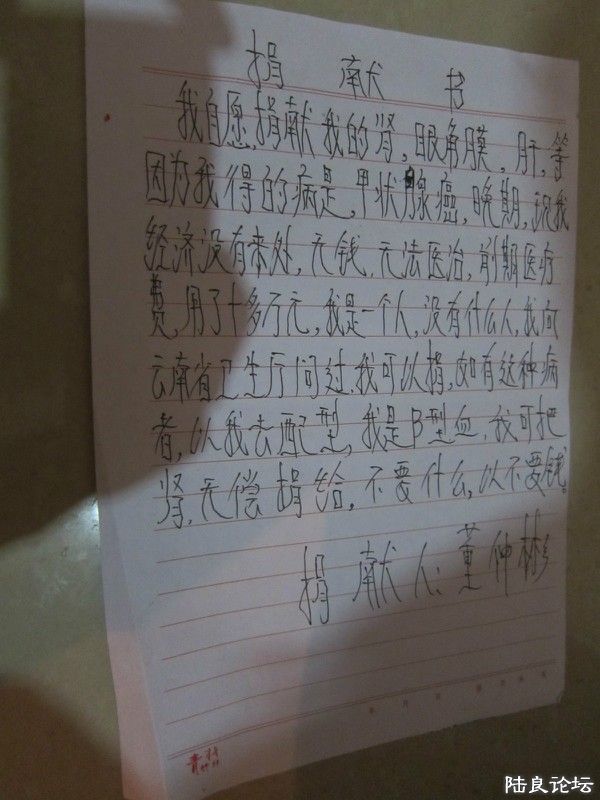 捐献书
我自愿捐献我的肾，眼角膜，肝，等
因为我得的病是，甲状腺癌，晚期，说我
经济没有来处，无钱，无法医治，前期医疗
费，用了十多万元，我是一个人，没有什么人，我向
云南省卫生厅问过，我可以捐，如有这种病
者，以我去配型，我是B型血，我可把
肾，无偿捐给，不要什么，以不要钱。
捐献人：董仲彬
陆良论坛